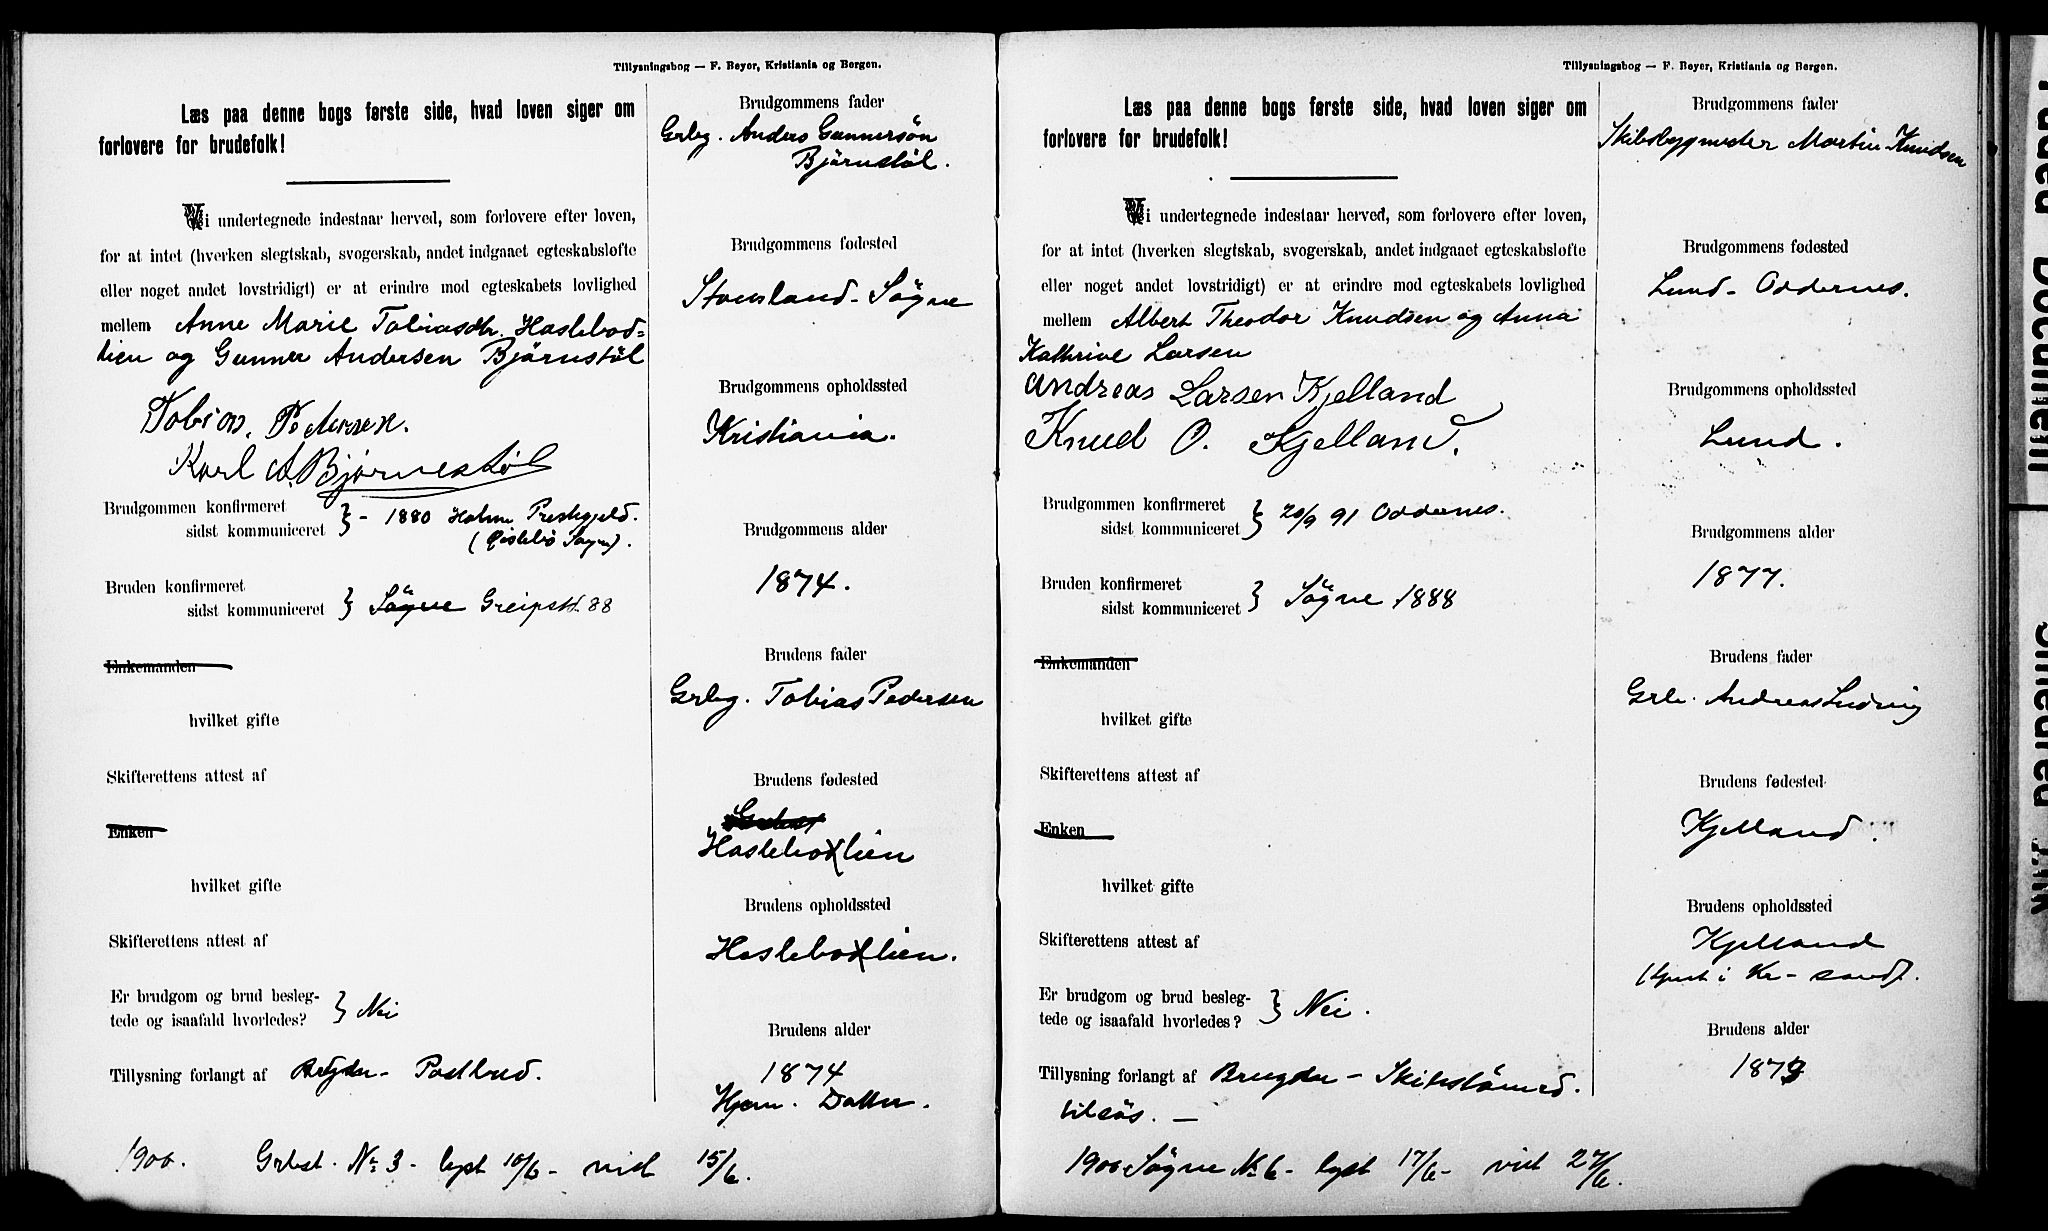 Tillysningsbog — F. Beyer, Kristiania og Bergen.
Læs paa denne bogs første side, hvad loven siger om
forlovere for brudefolk!
Vi undertegnede indestaar herved, som forlovere efter loven,
for at intet (hverken slegtskab, svogerskab, andet indgaaet egteskabsløfte
eller noget andet lovstridigt) er at erindre mod egteskabets lovlighed
mellem Anne Marie Tobiasdtr. Haslebod=
lien og Gunner Andersen Bjørnstøl
Tobias Pedersen.
Karl A. Bjørnestøl
Brudgommen konfirmeret
sidst kommuniceret } - 1880 Holme Prestegjeld.
(Øislebø Sogn).
Bruden konfirmeret
sidst kommuniceret } Søgne Greipst. 88
Enkemanden
hvilket gifte
Skifterettens attest af
Enken
hvilket gifte
Skifterettens attest af
Er brudgom og brud besleg-
tede og isaafald hvorledes? } Nei
Tillysning forlangt af Brgdm - Postbud.
Brudgommens fader
Grbg. Anders Gunnersøn
Bjørnstøl.
Brudgommens fødested
Stousland - Søgne
Brudgommens opholdssted
Kristiania.
Brudgommens alder
1874.
Brudens fader
Grbg. Tobias Pedersen
Brudens fødested
Haslebodlien
Brudens opholdssted
Haslebodlien.
Brudens alder
1874
Hjem. Datter.
1900. Grbst. No 3 - lyst 10/6 - viet 15/6.
Tillysningsbog — F. Beyer, Kristiania og Bergen.
Læs paa denne bogs første side, hvad loven siger om
forlovere for brudefolk!
Vi undertegnede indestaar herved, som forlovere efter loven,
for at intet (hverken slegtskab, svogerskab, andet indgaaet egteskabsløfte
eller noget andet lovstridigt) er at erindre mod egteskabets lovlighed
mellem Albert Theodor Knudsen og Anna
Kathrine Larsen
Andreas Larsen Kjelland
Knud O. Kjelland.
Brudgommen konfirmeret
sidst kommuniceret } 20/9 91 Oddernes.
Bruden konfirmeret
sidst kommuniceret } Søgne 1888
Enkemanden
hvilket gifte
Skifterettens attest af
Enken
hvilket gifte
Skifterettens attest af
Er brudgom og brud besleg-
tede og isaafald hvorledes? } Nei.
Tillysning forlangt af Brugdm - Skibstømrd.
tilsøs. —
Brudgommens fader
Skibsbygmester Martin Knudsen
Brudgommens fødested
Lund - Oddernes.
Brudgommens opholdssted
Lund.
Brudgommens alder
1877.
Brudens fader
Grb. Andreas Ludvig
Brudens fødested
Kjelland.
Brudens opholdssted
Kjelland
(tjent i Kr-sand).
Brudens alder
1873
1900 Søgne No 6 - lyst 17/6 - viet 27/6.